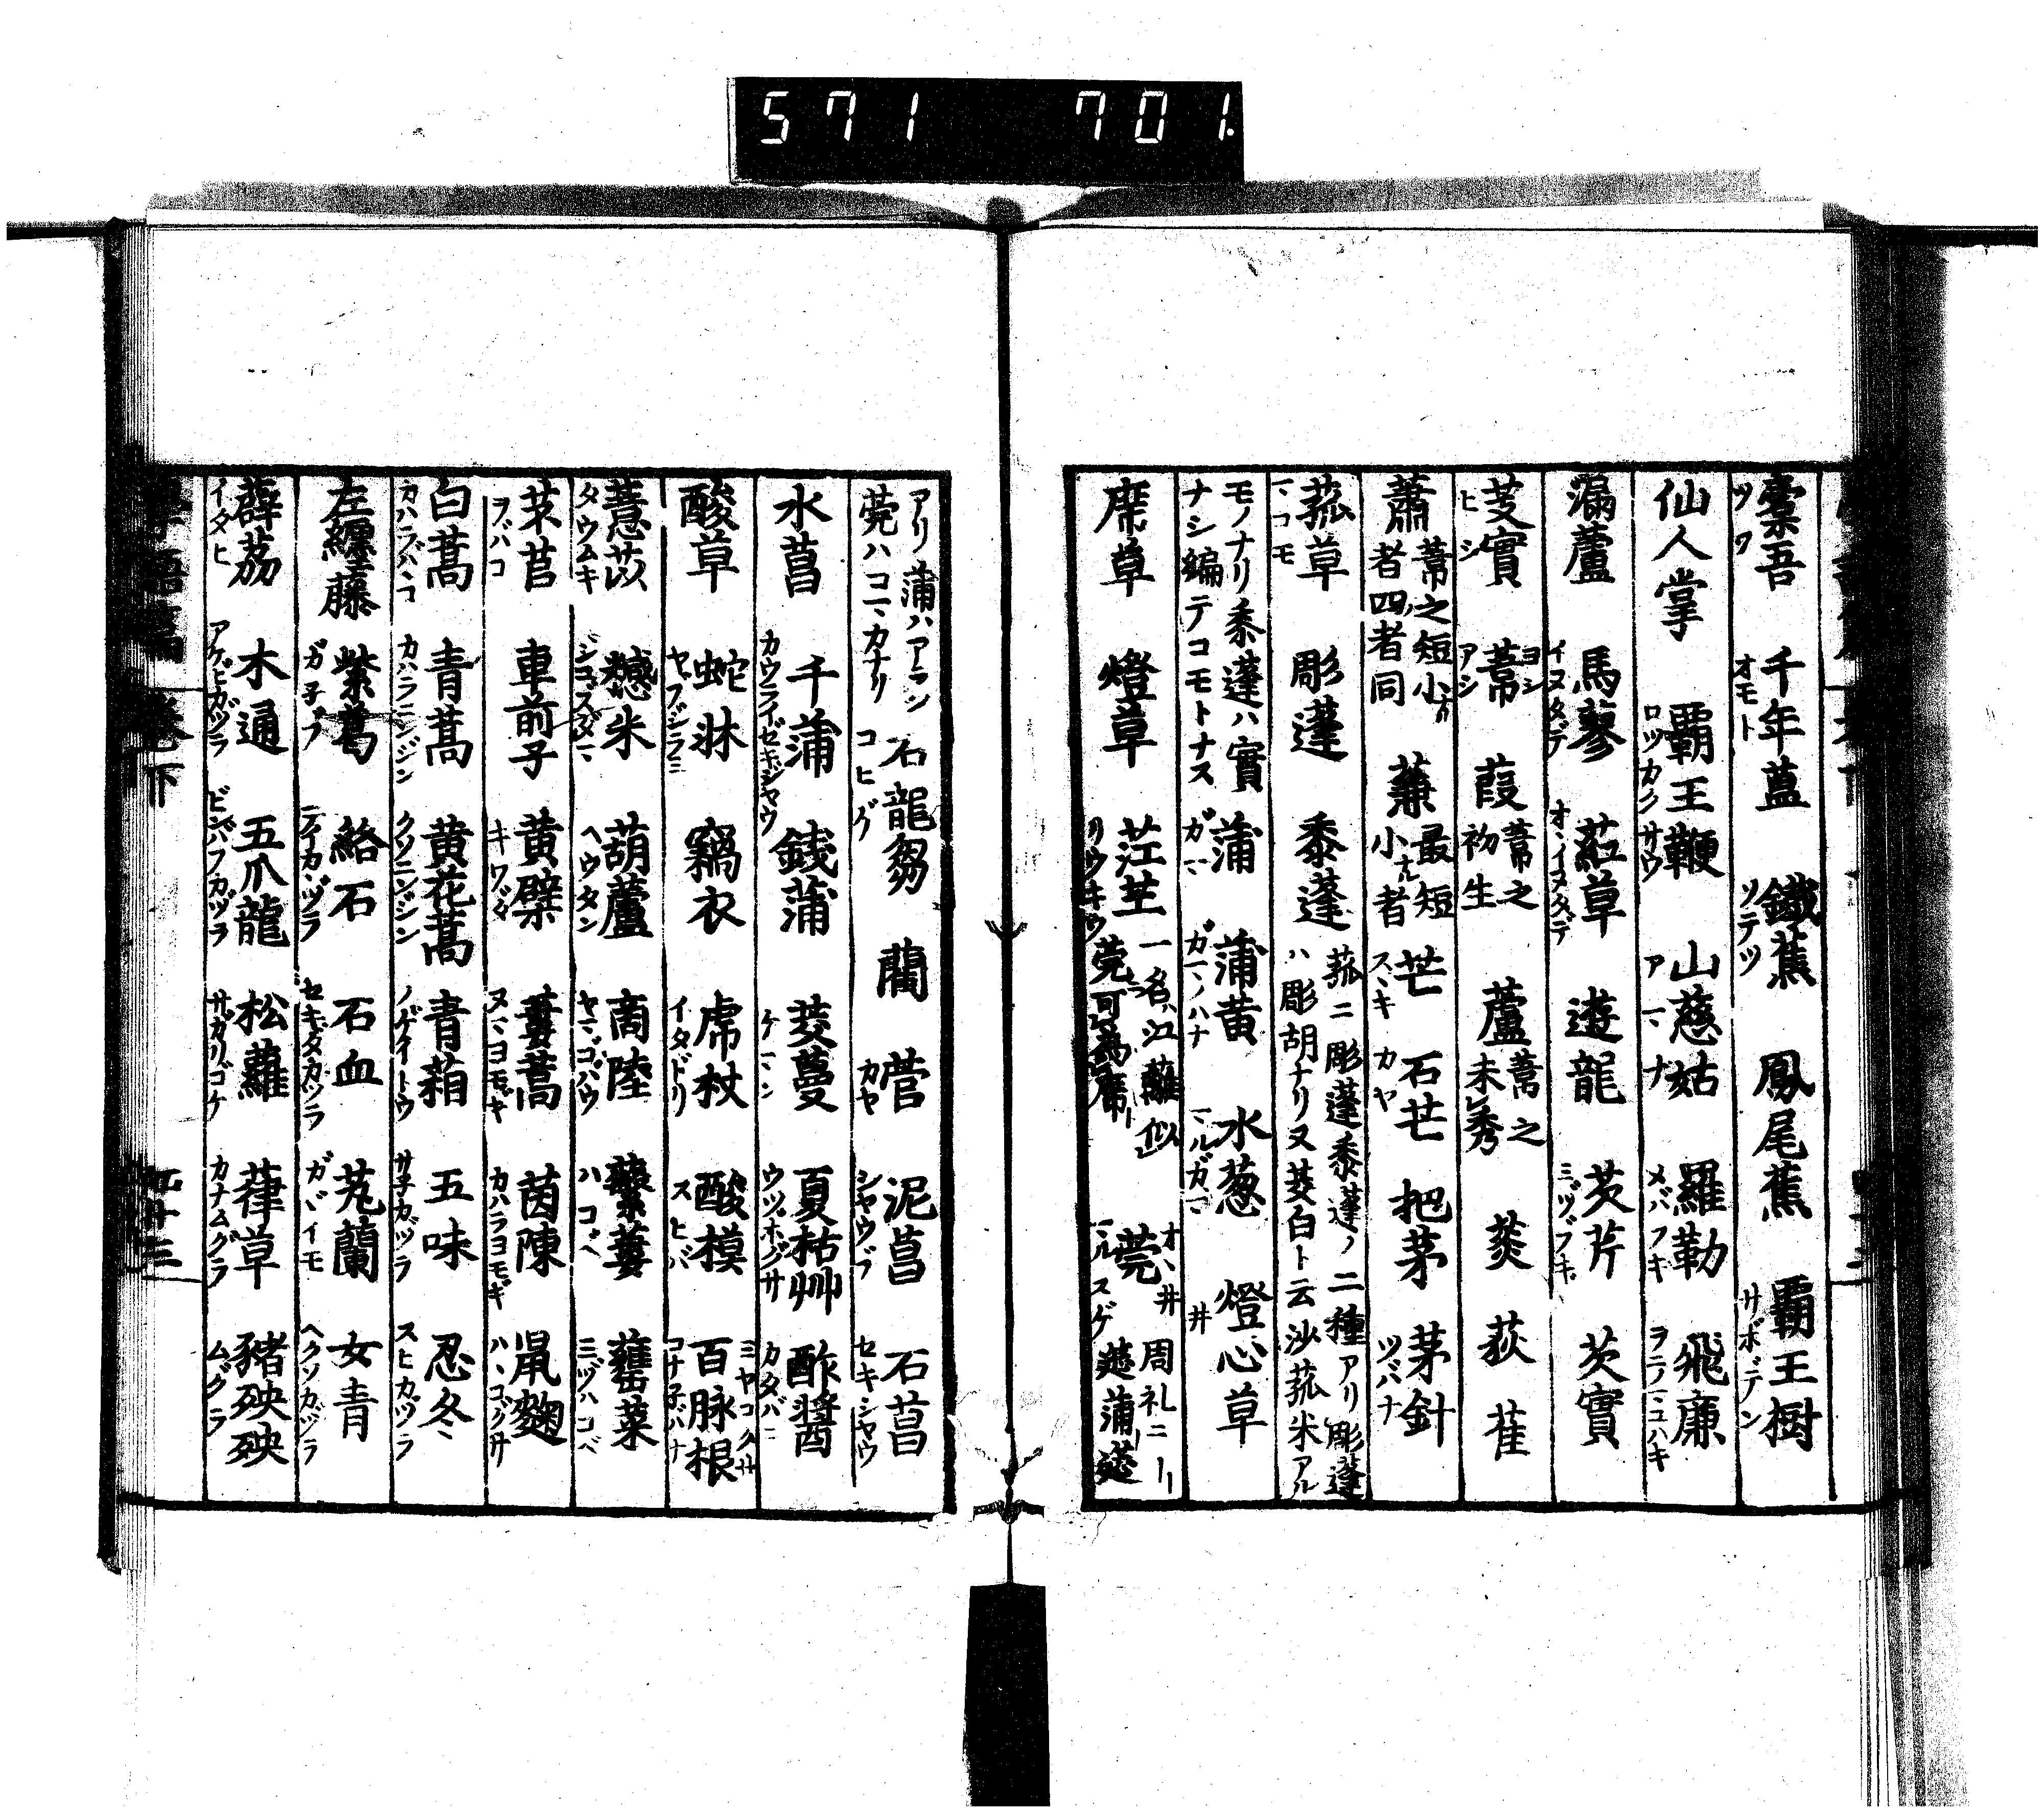 571 701
橐吾 ツワ 千年蒀 オモト 鐵蕉 ソテツ 鳳尾蕉 覇王樹 サボデン
仙人掌 覇王鞭 ロツカクサウ 山慈姑 アマナ 羅勒 メバフキ 飛廉 ヲニノマユハキ
漏蘆 馬蓼 イヌタデ 葒草 オヽイヌタデ 遊龍 芡芹 ミヅブキ 芡實
芰實 ヒシ 葦 ヨシ アシ 葭 葦之初生 蘆 葦之未秀 菼 荻 萑
蕭 葦之短小者四者同 蒹 最短小者 芒 スヽキ 石芒 カヤ 把茅 茅針 ツバナ
菰草 マコモ 彫蓬 黍蓬 菰ニ彫蓬黍蓬ノ二種アリ彫蓬ハ彫胡ナリ又茭白ト云沙菰米アル
モノナリ黍蓬ハ實ナシ編テコモトナス 蒲 ガマ 蒲黄 ガマノハナ 水葱 マルガマ 燈心草 井
席草 燈草 茳芏 リウキウ 一名江蘺似莞可為席 莞 オヽ井 マルスゲ 周礼ニ
アリ蒲ハアラン莞ハコマカナリ 石龍芻 コヒゲ 藺 菅 カヤ 泥菖 シヤウブ 石菖 セキシヤウ
水菖 千蒲 カウライゼキシヤウ 銭蒲 菱蔓 ケマン 夏枯艸 ウツボグサ 酢醬 カタバミ
酸草 蛇牀 ヤブジラミ 竊衣 虎杖 イタドリ 酸模 スヒバ 百脉根 ミヤコクサ コガ子バナ
薏苡 タウムキ 葫蘆 ヘウタン 商陸 ヤマゴバウ 蘩蔞 ハコベ 雞菜 ミヅハコベ
芣苢 ヲバコ 車前子 黄檗 キワダ 蔞蒿 ヌマヨモギ 茵陳 カハラヨモギ 鼠麴 ハヽコグサ
白蒿 カハラバヽコ 青蒿 カハラニンジン 黄花蒿 クソニンジン 青葙 ノゲイトウ 五味 サ子カヅラ 忍冬 スヒカヅラ
左纏藤 紫葛 ガ子ブ 絡石 テイカカヅラ 石血 セキダカヅラ 芄蘭 ガヾイモ 女青 ヘクソカヅラ
薜茘 イタヒ 木通 アケビカヅラ 五爪龍 ビンバフカヅラ 松蘿 サガリゴケ 葎草 カナムグラ 豬殃殃 ムグラ
卷下